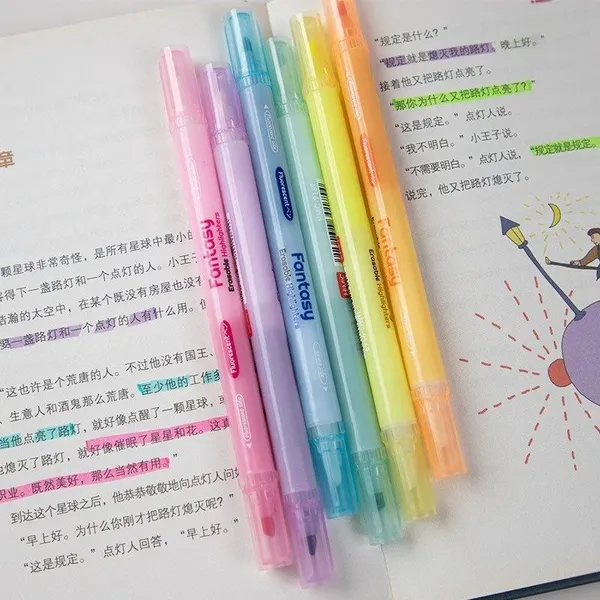 章
颗星球非常奇怪，是所有星球中最小的
容得下一盏路灯和一个点灯的人。小王子
浩瀚的太空中，在某个既没有房屋也没有
要一盏路灯和一个点灯的人有什么用。他
"这也许是个荒唐的人。不过他没有国王、
、生意人和酒鬼那么荒唐。至少他的工作
当他点亮了路灯，就好像点醒了一颗星球，
也熄灭了路灯，就好像催眠了星星和花。这真
职业。既然美好，那么当然有用。"
到达这个星球之后，他恭恭敬敬地向点灯人问
"早上好。为什么你刚才把路灯熄灭呢？"
"这是规定。"点灯人回答，"早上好。"
"规定是什么？"
"规定就是熄灭我的路灯。晚上好。"
接着他又把路灯点亮了。
"那你为什么又把路灯点亮了？"
"这是规定。"点灯人说。
"我不明白。"小王子说。
"不需要明白。"点灯人说，"规定就是规定。
说完，他又把路灯熄灭了。
Fantasy
Erasable Highlighters
Fluorescent
Fluorescent
Fantasy
Erasable Highlighters
Fantasy
Erasable Highlighters